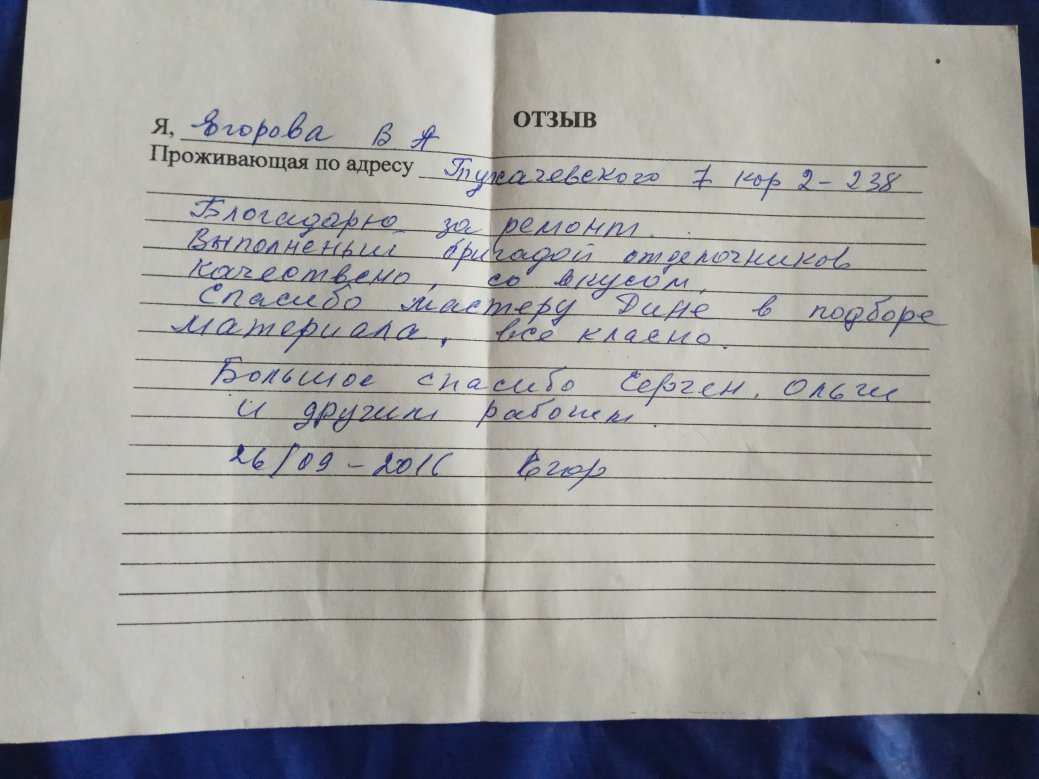 ОТЗЫВ
Я, Егорова В А
Проживающая по адресу Тухачевского 7 кор 2-238
Благадарю за ремонт.
Выполненый бригадой отделочников
качествено, со вкусом.
Спасибо мастеру Дине в подборе
материала, все класно.
Большое спасибо Серген, Ольги
и другим работ.
26/09-2016 Егор